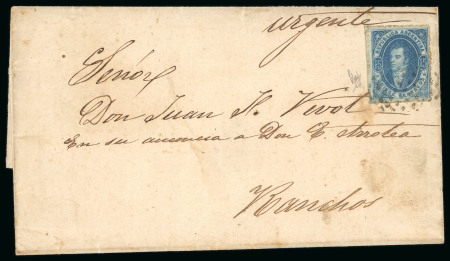 urgente
REPUBLICA ARGENTINA
Señor
Don Juan H. Vivot
En su ausencia a Don E.
Ranchos